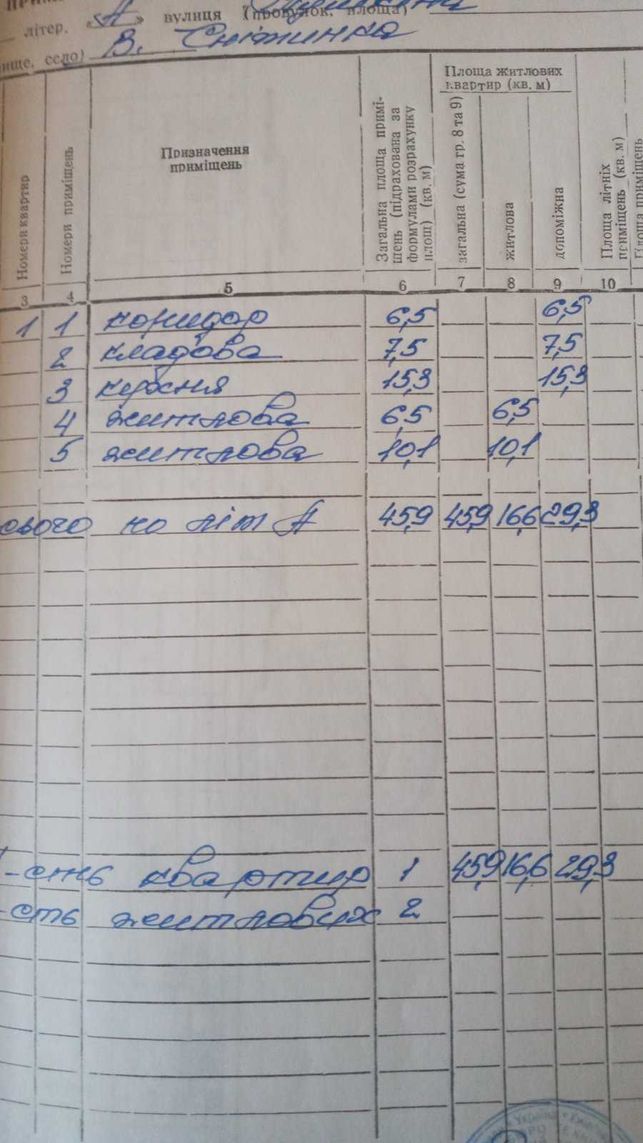 літер. «А» вулиця (провулок, площа)
ище, село) В. Снітинка
Номери квартир
Номери приміщень
Призначення приміщень
Загальна площа приміщень (підрахована за формулами розрахунку площ) (кв. м)
Площа житлових квартир (кв. м)
загальна (сума гр. 8 та 9)
житлова
допоміжна
Площа літніх приміщень (кв. м)
Площа приміщень
3 4 5 6 7 8 9 10
1 1 коридор 6,5 6,5
2 кладова 7,5 7,5
3 кухня 15,3 15,3
4 житлова 6,5 6,5
5 житлова 10,1 10,1
ього по літ А 45,9 45,9 16,6 29,3
-сть квартир 1 45,9 16,6 29,3
сть житлових 2
Україна